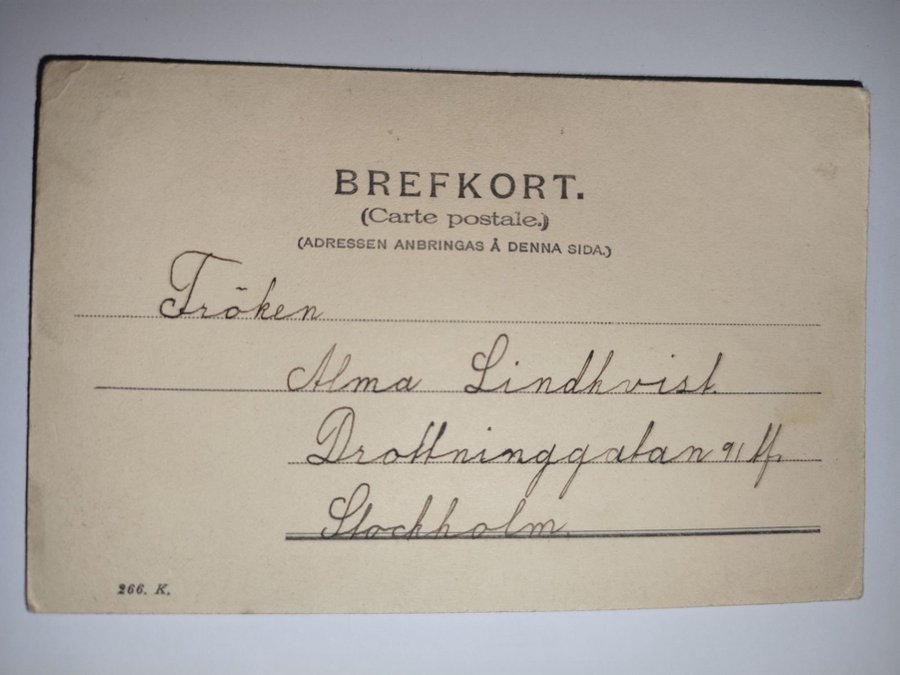 BREFKORT.
(Carte postale.)
(ADRESSEN ANBRINGAS Å DENNA SIDA.)
Fröken
Alma Lindkvist.
Drottninggatan 91
Stockholm.
266. K.